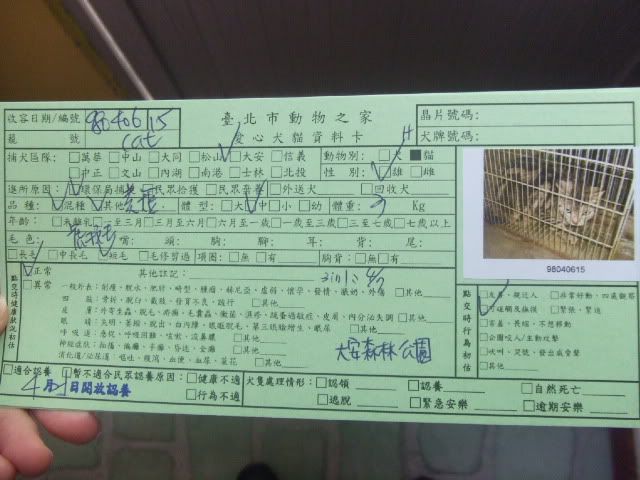 收容日期/編號 98040615
籠 號 cat
臺北市動物之家
愛心犬貓資料卡
晶片號碼:
犬牌號碼:
捕犬區隊: □萬華 □中山 □大同 □松山 □大安 □信義
□中正 □文山 □內湖 □南港 □士林 □北投
動物別: □犬 ■貓
性 別: □雄 □雌
進所原因: □環保局捕捉 □民眾拾獲 □民眾棄養 □外送犬 □回收犬
品 種: □混種 □其他 體 型: □大 □中 □小 □幼 體重: 3 Kg
年齡: □未離乳 □一至三月 □三月至六月 □六月至一歲 □一歲至三歲 □三至七歲 □七歲以上
毛 色: 嘴: 頭: 胸: 腳: 耳: 背: 尾:
□長毛 □中長毛 □短毛 □毛修剪過 項圈: □無 □有 胸背: □無 □有
點交時健康狀況初估
□正常
□異常
其他註記:
3in1: 4/7
一般外表: 削瘦、脫水、肥胖、畸型、腫瘤、赫尼亞、虛弱、懷孕、發情、脹奶、外傷 □其他
四 肢: 骨折、脫臼、截肢、發育不良、跛行 □其他
皮 膚: 外寄生蟲、脫毛、疥癬、毛囊蟲、黴菌、濕疹、跳蚤過敏症、皮屑、內分泌失調 □其他
呼 吸 道: 急促、呼吸困難、咳嗽、流鼻膿 □其他
神經症狀: 抽搐、癱瘓、半癱、昏迷、全癱 □其他
消化道/泌尿道: 嘔吐、瘦瀉、血便、血尿、菜花 □其他
大安森林公園
98040615
點交時行為初估
□友善、親近人 □非常好動、四處觀望
□可碰觸及撫摸 □緊張、緊迫
□害羞、畏縮、不想移動
□企圖咬人/主動攻擊
□吹叫、哭號、發出威脅聲
□其他
□適合認養 □暫不適合民眾認養原因: □健康不適
□行為不適
4月 日開放認養
犬隻處理情形: □認領 □認養 □自然死亡
□逃脫 □緊急安樂 □逾期安樂